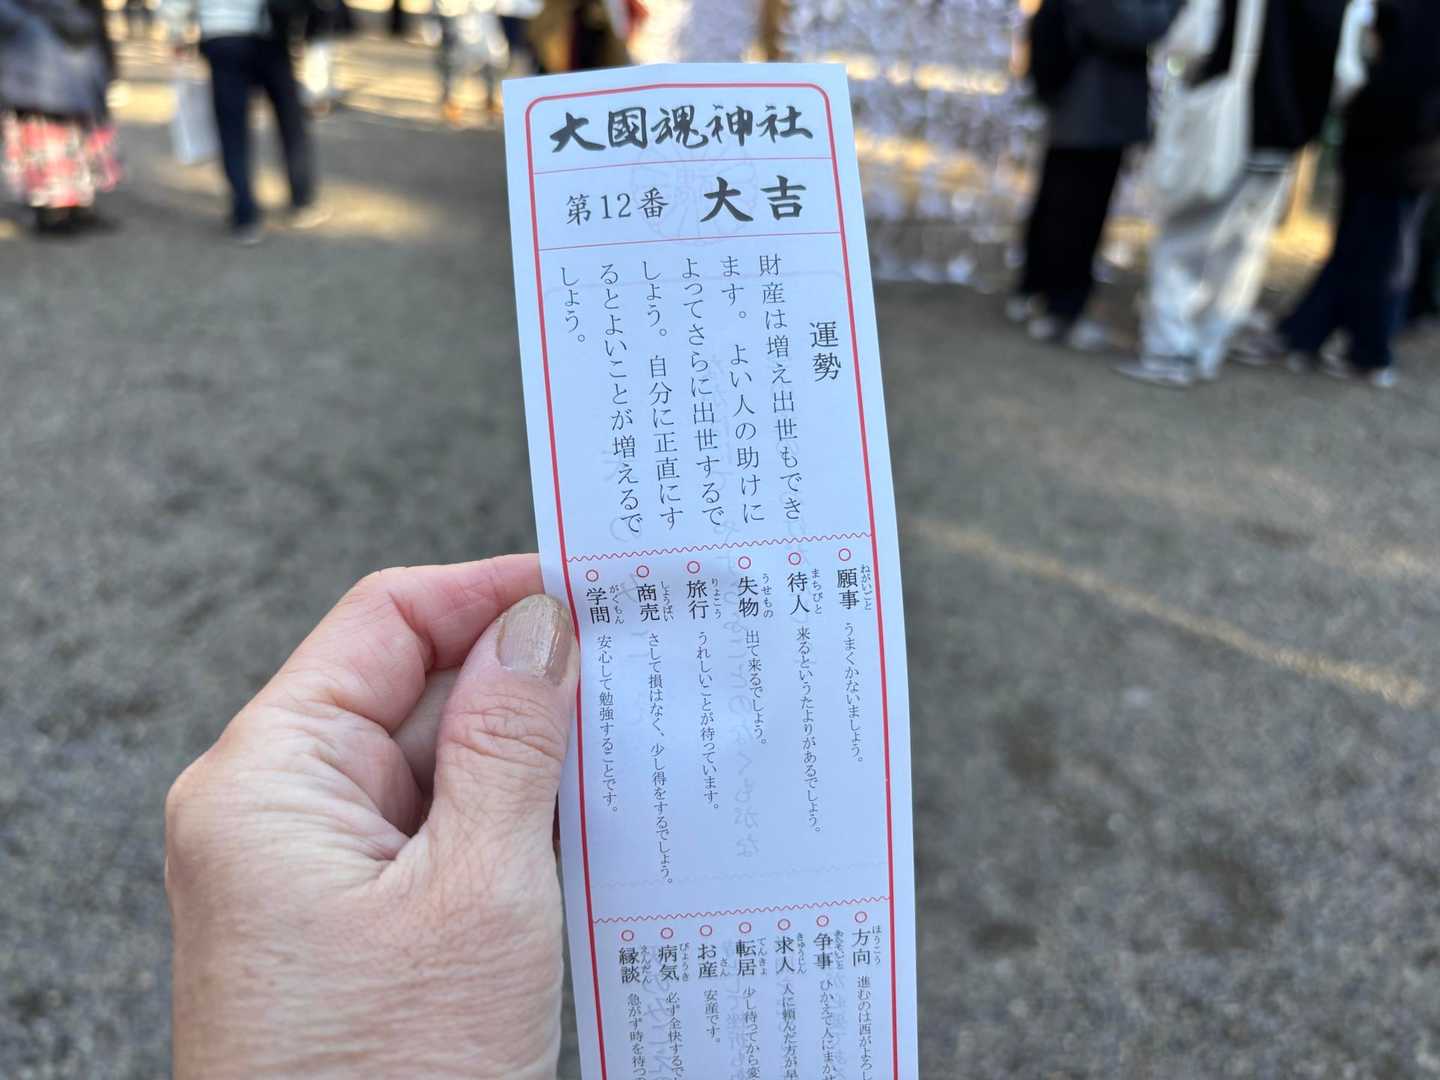 大國魂神社
第12番 大吉
運勢
財産は増え出世もでき
ます。よい人の助けに
よってさらに出世するで
しょう。自分に正直にす
るとよいことが増えるで
しょう。
願事 ねがいごと うまくかないましょう。
待人 まちびと 来るというたよりがあるでしょう。
失物 うせもの 出て来るでしょう。
旅行 りょこう うれしいことが待っています。
商売 しょうばい さして損はなく、少し得をするでしょう。
学問 がくもん 安心して勉強することです。
方向 ほうこう 進むのは西がよろし
争事 あらそいごと ひかえて人にまかせ
求人 きゅうじん 人に頼んだ方が早
転居 てんきょ 少し待ってから変
お産 さん 安産です。
病気 びょうき 必ず全快するで
縁談 えんだん 急がず時を待つ